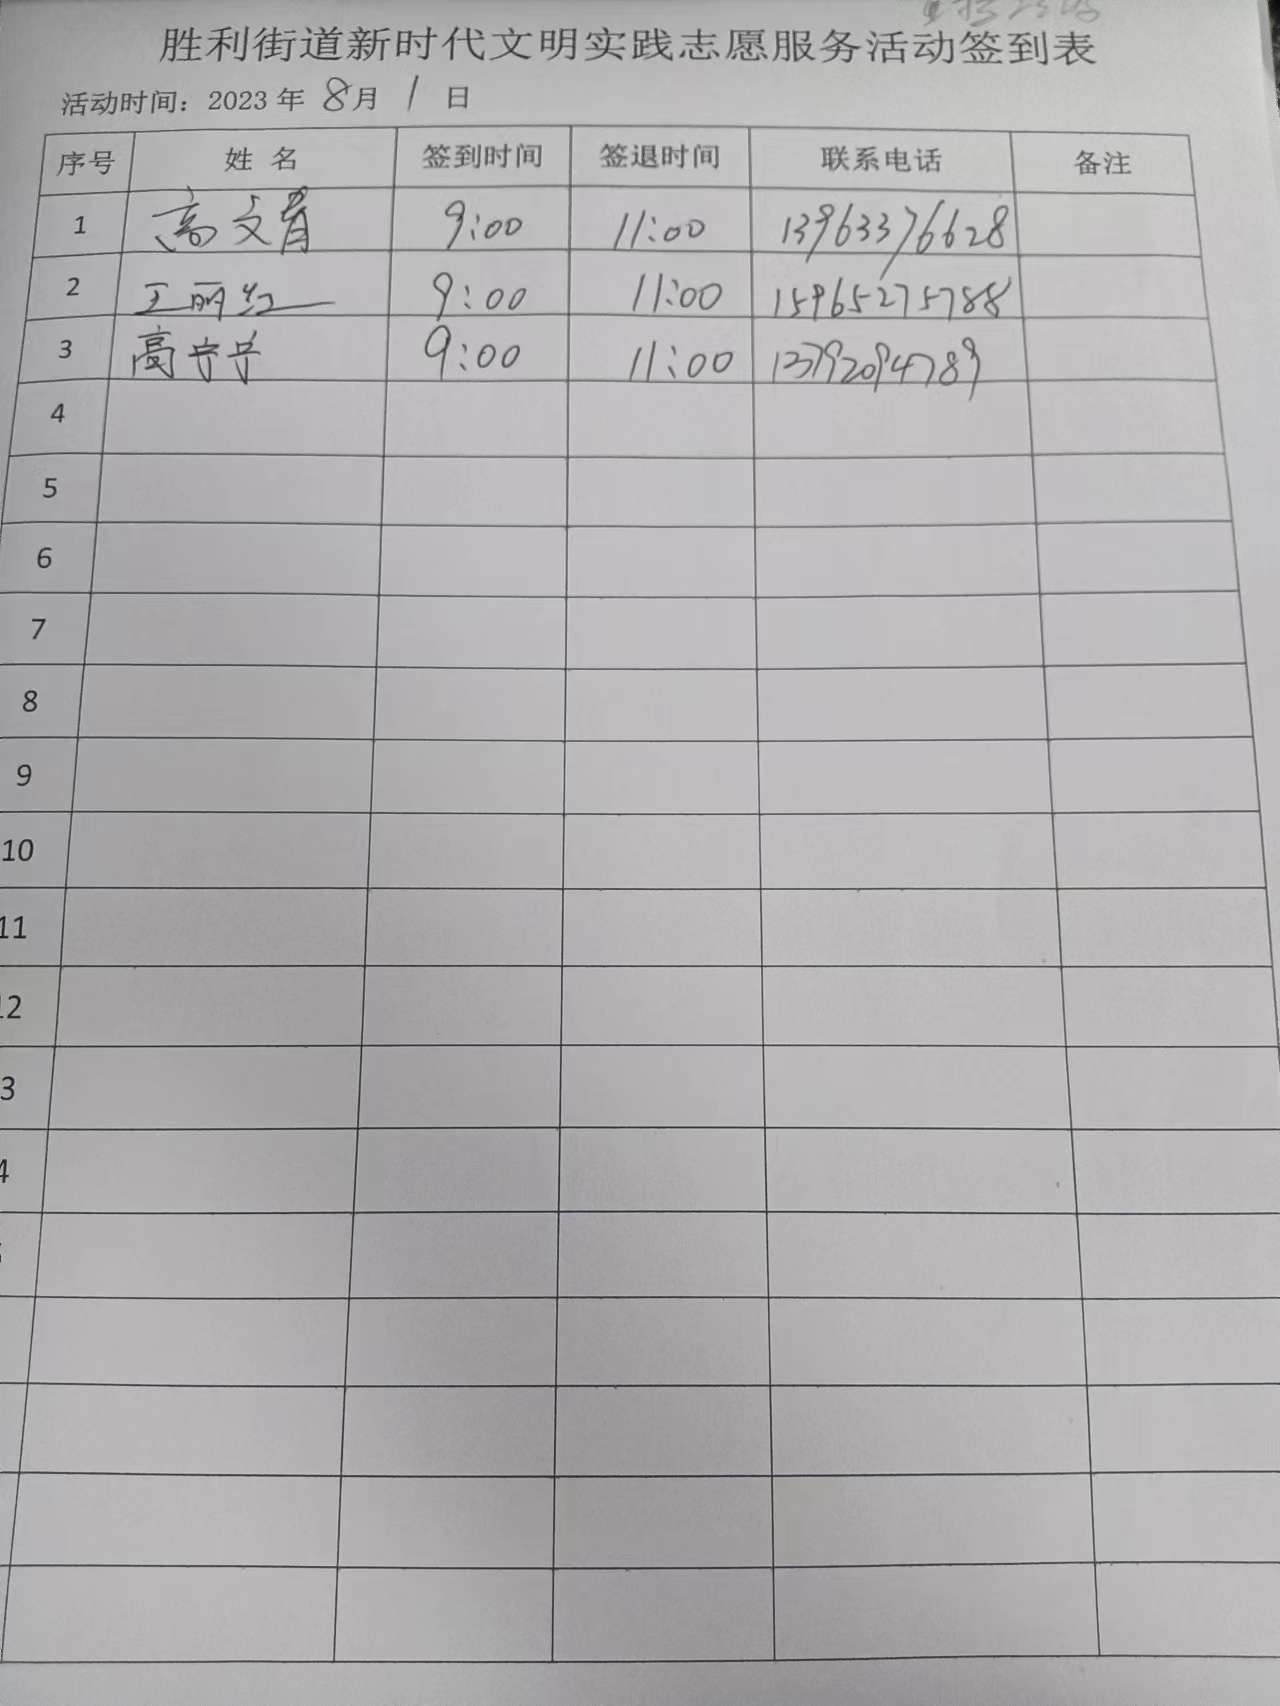 胜利街道新时代文明实践志愿服务活动签到表
活动时间：2023 年 8月 1 日
序号 姓 名 签到时间 签退时间 联系电话 备注
1 高文 9:00 11:00 13963376628
2 王丽红 9:00 11:00 15965275788
3 高宁宁 9:00 11:00 13792094789
4
5
6
7
8
9
10
11
12
3
4